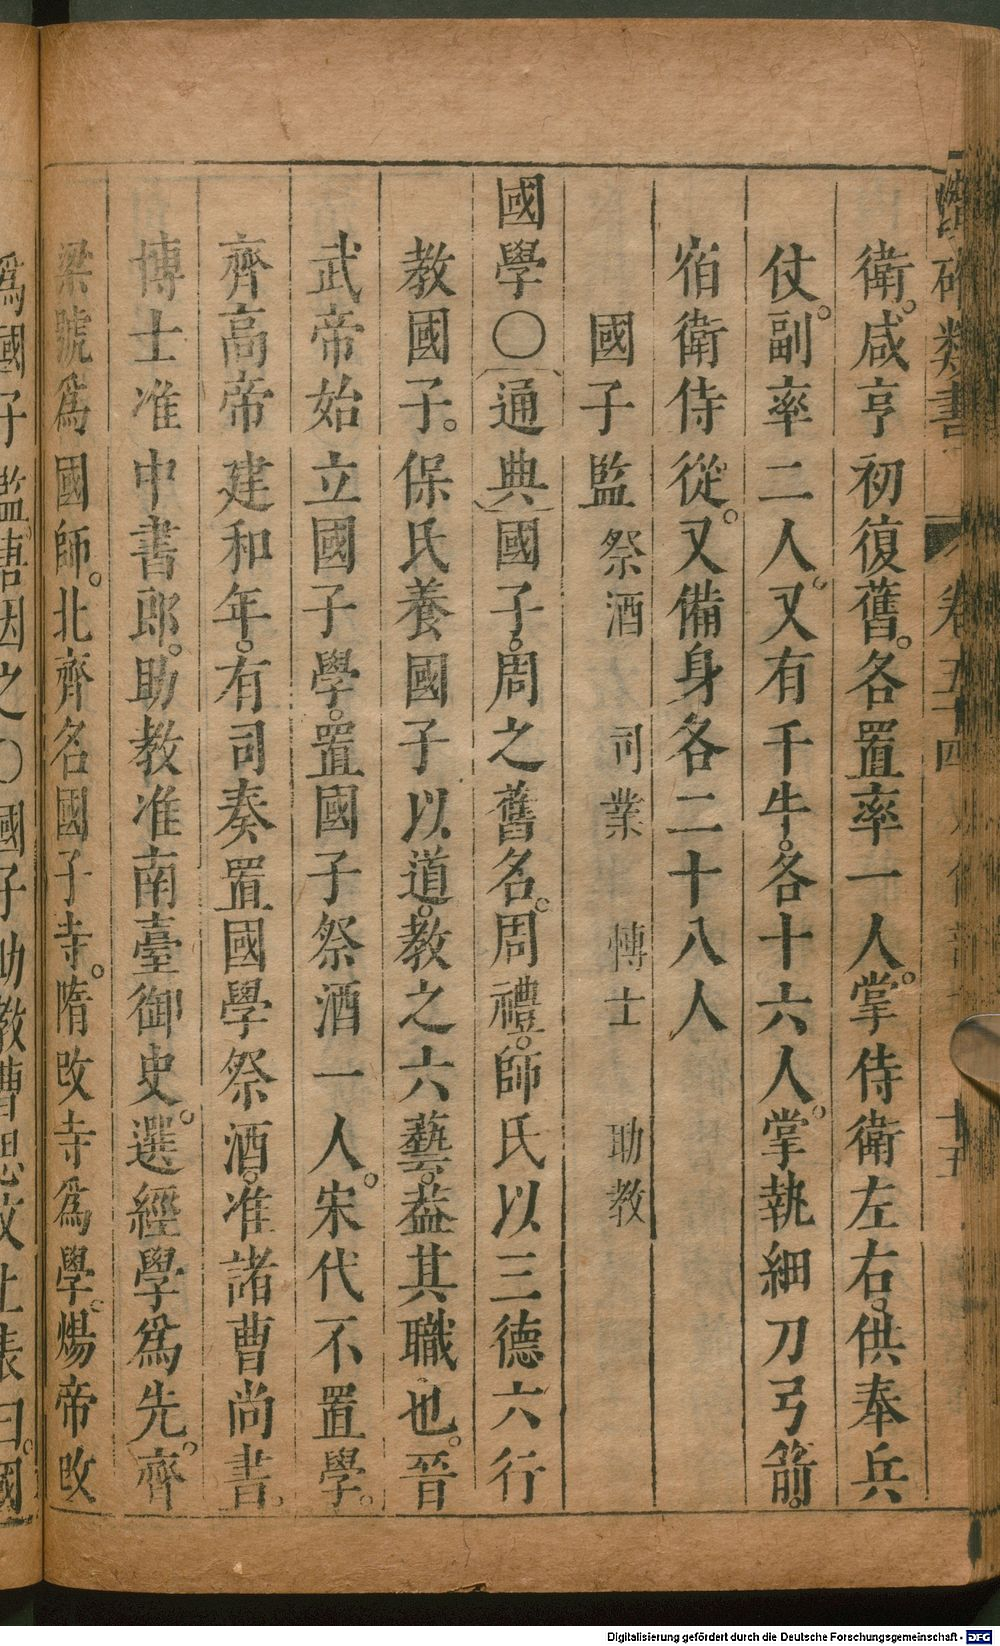 類書 卷五十四 十五
衛。咸亨初復舊。各置率一人。掌侍衛左右。供奉兵
仗。副率二人。又有千牛。各十六人。掌執細刀弓箭。
宿衛侍從。又備身各二十八人
國子監 祭酒 司業 博士 助教
國學〇通典國子。周之舊名。周禮。師氏以三德六行
教國子。保氏養國子以道。教之六藝。葢其職也。晉
武帝始立國子學。置國子祭酒一人。宋代不置學。
齊高帝建和年。有司奏置國學祭酒。准諸曹尚書。
博士准中書郎。助教准南臺御史。選經學爲先。齊
梁號爲國師。北齊名國子寺。隋改寺爲學。煬帝改
爲國子監。唐因之〇國子助教曹思文上表曰。國
Digitalisierung gefördert durch die Deutsche Forschungsgemeinschaft - DFG